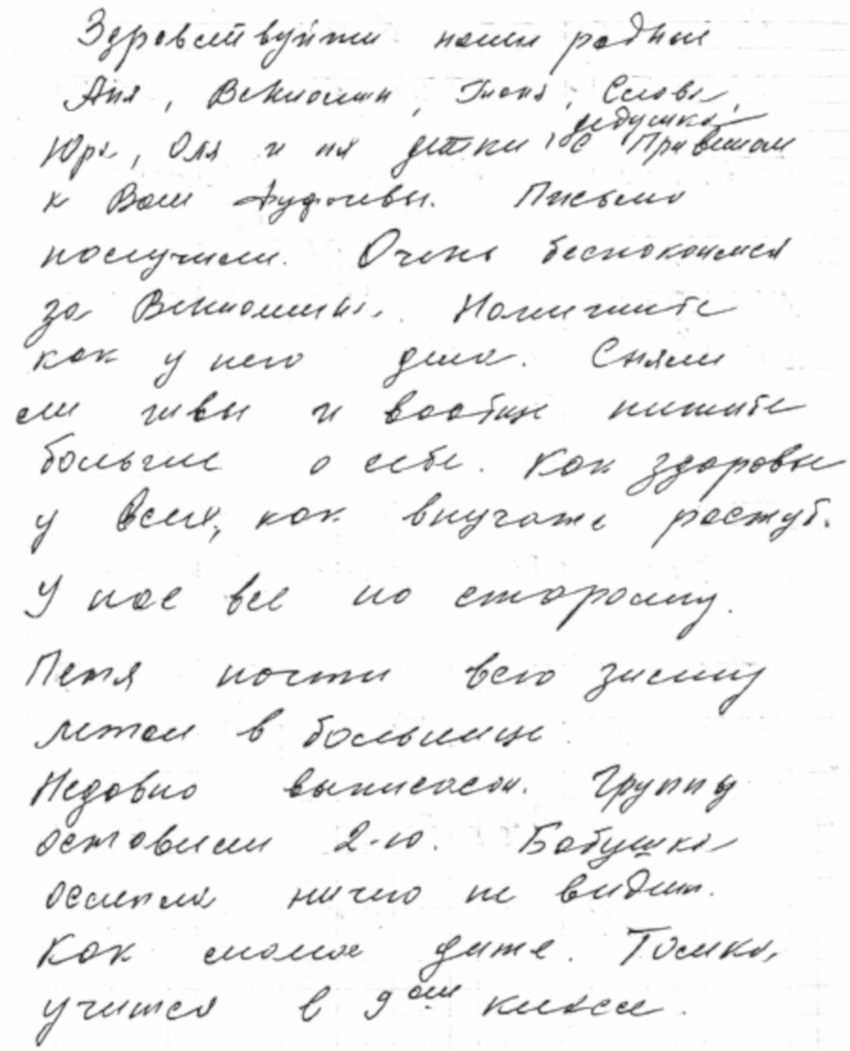 Здравствуйти наши родные
Аня, Вениомин, Тоня, Слава,
дедушка
Юра, Оля и их детки, с Приветом
к Вам Ауфчивы. Письмо
получили. Очень беспокоимся
за Вениомина. Напишите
как у него дела. Сняли
ли швы и вообще пишите
больше о себе. Как здоровье
у Всех, как внучата растут.
У нас все по старому.
Петя почти всю зиму
лежал в больнице
Недавно выписался. Группу
оставили 2-ю. Бабушка
ослепла ничего не видит.
Как малое дитя. Томка,
учится в 9ом классе.